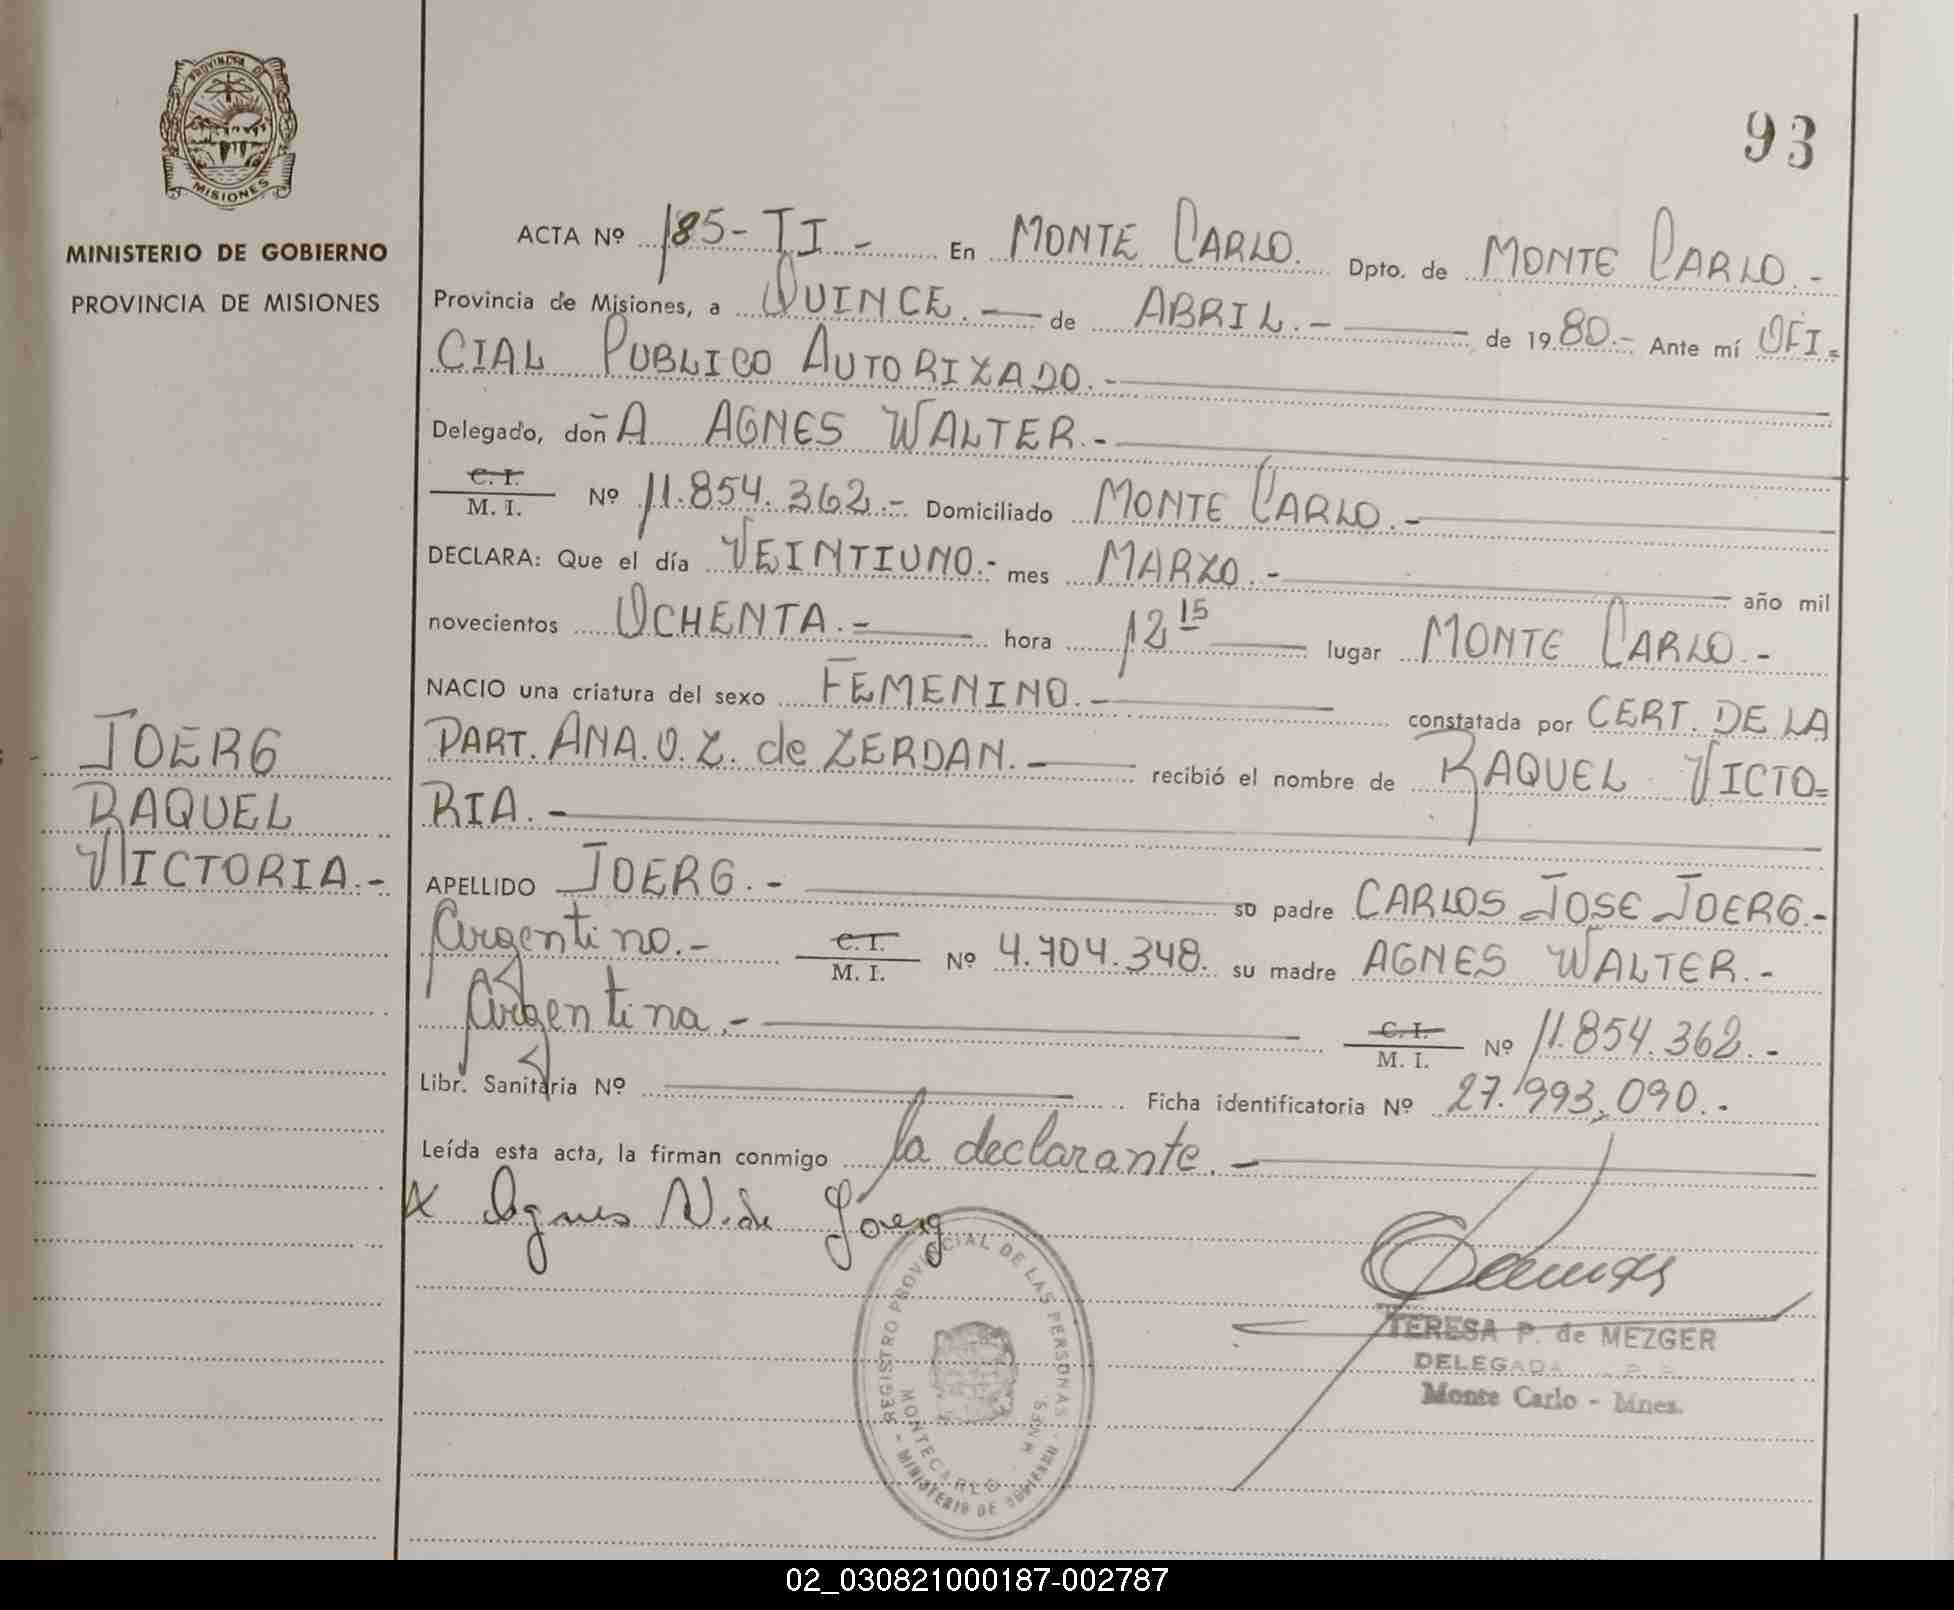 PROVINCIA DE
MISIONES
MINISTERIO DE GOBIERNO
PROVINCIA DE MISIONES
93
ACTA Nº 185-TI.- En MONTE CARLO. Dpto. de MONTE CARLO.-
Provincia de Misiones, a QUINCE.- de ABRIL.- de 1980.- Ante mí OFI=
CIAL PUBLICO AUTORIZADO.-
Delegado, doñA AGNES WALTER.-
C. I.
M. I. Nº 11.854.362.- Domiciliado MONTE CARLO.-
DECLARA: Que el día VEINTIUNO.- mes MARZO.- año mil
novecientos OCHENTA.- hora 12 15 lugar MONTE CARLO.-
NACIO una criatura del sexo FEMENINO.- constatada por CERT. DE LA
PART. ANA. O. Z. de ZERDAN.- recibió el nombre de RAQUEL VICTO=
RIA.-
JOERG
RAQUEL
VICTORIA.-
APELLIDO JOERG.- su padre CARLOS JOSE JOERG.-
Argentino.- C. I.
M. I. Nº 4.704.348. su madre AGNES WALTER.-
Argentina.- C. I.
M. I. Nº 11.854.362.-
Libr. Sanitaria Nº Ficha identificatoria Nº 27.993.090.-
Leída esta acta, la firman conmigo la declarante.-
X Agnes W. de Joerg
REGISTRO PROVINCIAL DE LAS PERSONAS
MONTECARLO MNES
- MINISTERIO DE GOBIERNO -
TERESA P. de MEZGER
DELEGADA
Monte Carlo - Mnes.
02_030821000187-002787